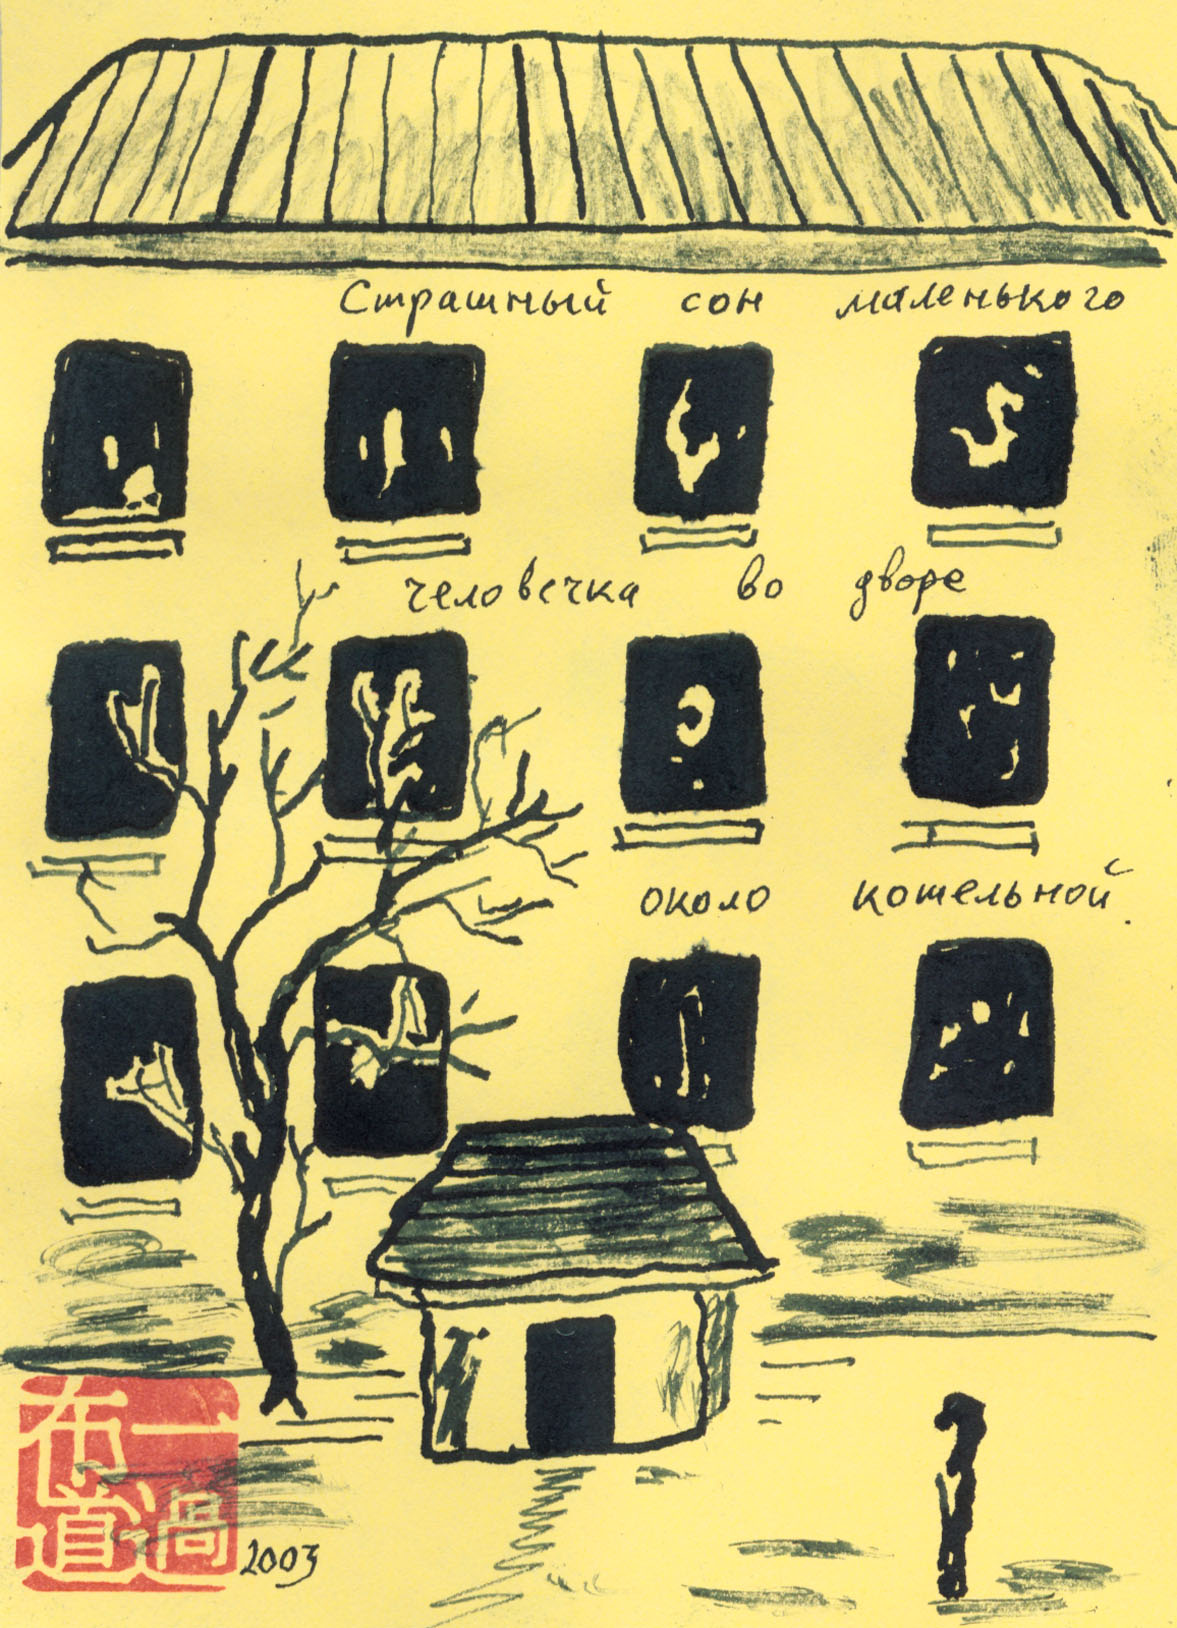 Страшный сон маленького
человечка во дворе
около котельной.
一
布
過
道
2003